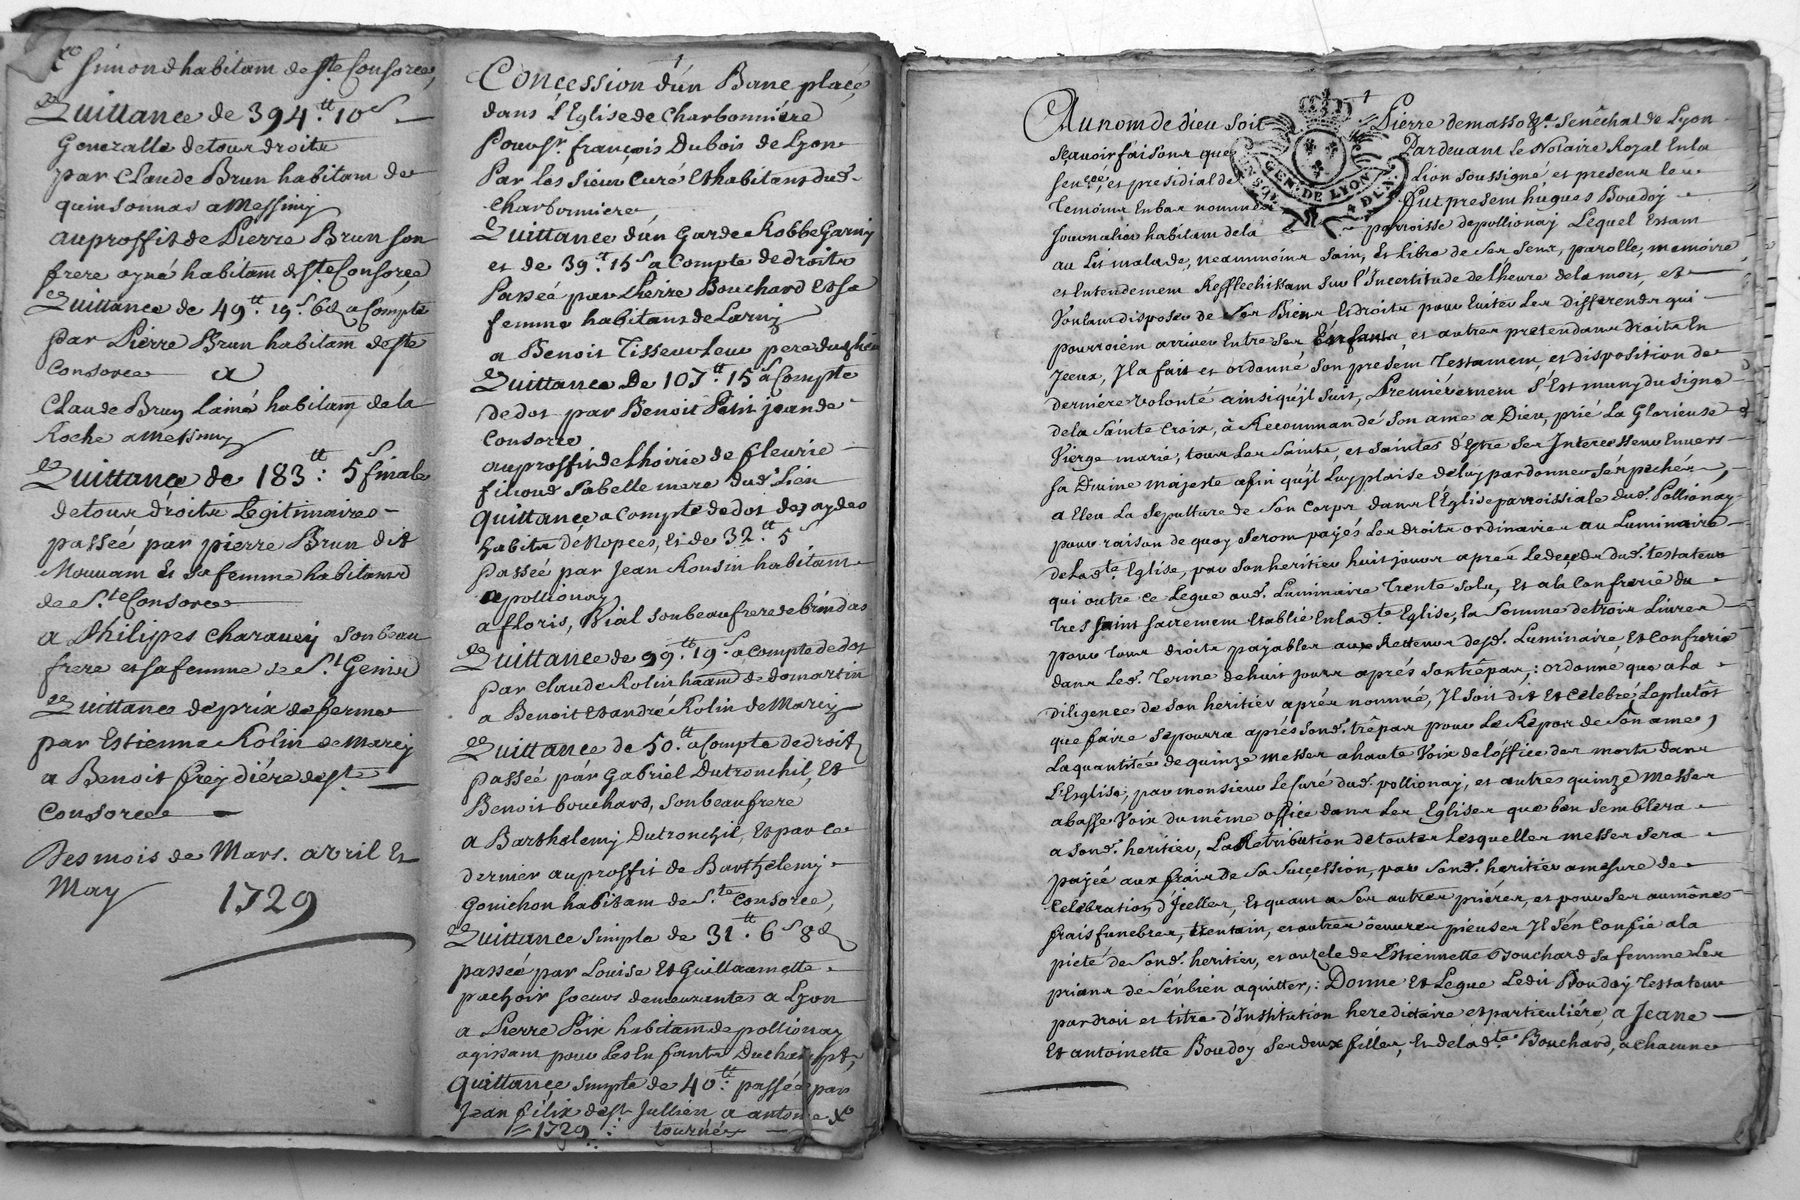 Simond habitam de Ste Consorce,
Quittance de 394.tt 10s
Generalle de tous droits
par Claude Brun habitam de
quinsonnas a Messimy
au proffit de Pierre Brun son
frere ayné habitam de Ste Consorce
Quittance de 49.tt 19.s 6d a Compte
par Pierre Brun habitam de Ste
Consorce a
Claude Brun lainé habitam de la
Roche a Messimy
Quittance de 183.tt 5s finale
de tous droits Legitimaires
passée par pierre Brun dit
Mouvam Et sa femme habitans
de Ste Consorce
a Philipes Charavay son beau
frere et sa femme de St Genis
Quittance de prix de ferme
par Estienne Rolin de Marcy
a Benoit freydiére de Ste
Consorce
Des mois de Mars. avril Et
May 1729
Concession d'un Banc placé
dans l'Eglise de Charbonniére
Pour Sr. françois Dubois de Lyon
Par les Sieur Curé Et habitans dud.
Charbonniere
Quittance d'un Garde Robbe Garny
et de 39.tt 15s a Compte de droits
Passée par Pierre Bouchard Et sa
femme habitans de Larny
a Benoit Tisseur Leur pere
Quittance De 107.tt 15s a Compte
de dot par Benoit Petit jean de
Consorce
au proffit de Lhoirie de fleurie
filioud Isabelle mere dud. Lien
quittance a Compte de dot
habits de Nopces, Et de 32.tt 5s
passée par Jean Rousin habitam
a pollionay
a floris, Vial son beau frere de brindas
Quittance de 99.tt 19s a Compte de dot
par Claude Rolin de domartin
a Benoit Et andré Rolin de Marcy
Quittance de 50.tt a Compte de droits
passée par Gabriel Dutronchil, Et
Benoit bouchard, son beau frere
a Barthelemy Dutronchil, Et par Ce
dernier au proffit de Barthelemy
Gouichon habitam de Ste Consorce,
Quittance simple de 31.tt 6s 8d
passée par Louise Et Guillaumette
pachoir soeurs demeurantes a Lyon
a Pierre Poix habitam de pollionay
agissam pour Les Enfants Duchampt,
quittance simple de 40.tt passée par
Jean felix de St. Jullien a antoine
1729 tournés
Au nom de dieu soit Pierre de masso &a. Senêchal de Lyon
Scavoir faisons que Pardevant Le Notaire Royal En la
Senee. et presidial de Lion soussigné et presens les
Temoins En bas nommés Fut present hugues Boudoy
Journalier habitam de la parroisse de pollionay Lequel Estam
GEN. DE LYON
au Lit malade, neammoins sain, Et libre de Ses Sens, parolle, memoire
et Entendement Refflechissam Sur l'Incertitude de L'heure de la mort, et
Voulam disposer de Ses Biens Et droits pour Eviter Les differends qui
pourroiem arriver Entre Ses Enfants, et autres pretendans droits En
Jceux, Jl a fait et ordonné Son presem Testament, et disposition de
derniere volonté ainsi qu'jl suit, Premiérement S'Est muny du Signe
de la Sainte Croix, à Recommandé Son ame a Dieu, prié La Glorieuse
Vierge marie, tous Les Saints, et Saintes d'Estre Ses Intercesseurs Envers
Sa Divine majesté afin qu'jl Luy plaise de luy pardonner Ses pechés,
a Eleu La Sepulture de Son Corps dans l'Eglise parroissiale dud. Pollionay
pour raison de quoy Serom payés Les droits ordinaires au Luminaire
de Ladte. Eglise, par son héritier huit jours aprés Le decedz dud. testateur
qui outre ce Legue aud. Luminaire Trente Sols, Et a la Confrerie du
Tres Saint Sacrement Etablie En lad.te Eglise, la Somme de trois Livres
pour tous droits payables aux Recteurs desd. Luminaire, Et Confrerie
dans Led. Terme de huit jours aprés son trêpas; ordonne, que a la
diligence de Son heritier aprés nommé, Jl Soit dit Et Celebré, Le plutôt
que faire Se pourra aprés Sond. trêpas pour Le Repos de Son ame,
La quantitée de quinze messes a haute Voix de l'office des morts dans
L'Esglise, par monsieur Le Curé dud. pollionay, et autres quinze messes
a basse Voix du même office dans Les Eglises que bon Semblera
a Sond. heritier, La Retribution de toutes Lesquelles messes Sera
payée aux frais de Sa Succession, par Sond. heritier a mesure de
Celebration d'Jcelles, Et quam a Ses autres priéres, et pour Ses aumônes
frais funebres, trentain, et autres oeuvres pieuses Jl S'en Confie a la
pieté de Sond. heritier, et au Zele de Estiennette Bouchard sa femme Les
priant de S'en bien aquitter; Donne Et Legue Ledit Boudoy Testateur
par droit et titre d'Institution hereditaire et particuliére, a Jeane
Et antoinette Boudoy Ses deux filles, Et de lad.te Bouchard, a chacune